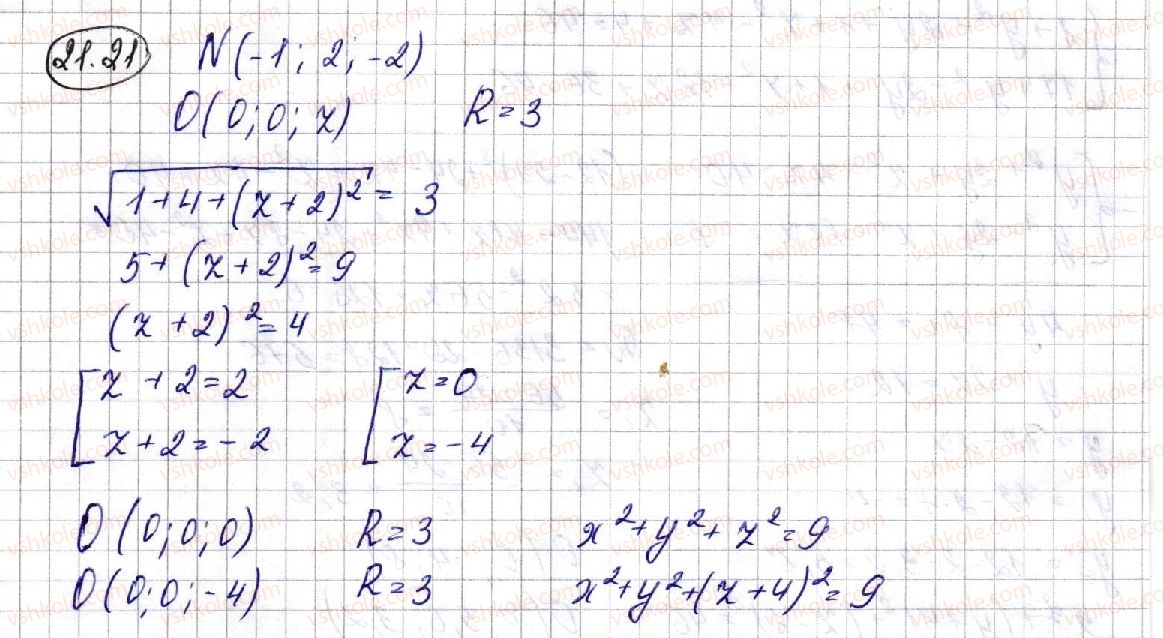 21.21 N(-1; 2; -2)
O(0; 0; z) R = 3
√(1+4+(z+2)²) = 3
5+(z+2)² = 9
(z+2)² = 4
[z+2=2 [z=0
[z+2=-2 [z=-4
O(0; 0; 0) R=3 x²+y²+z²=9
O(0; 0; -4) R=3 x²+y²+(z+4)²=9
vshkole.com